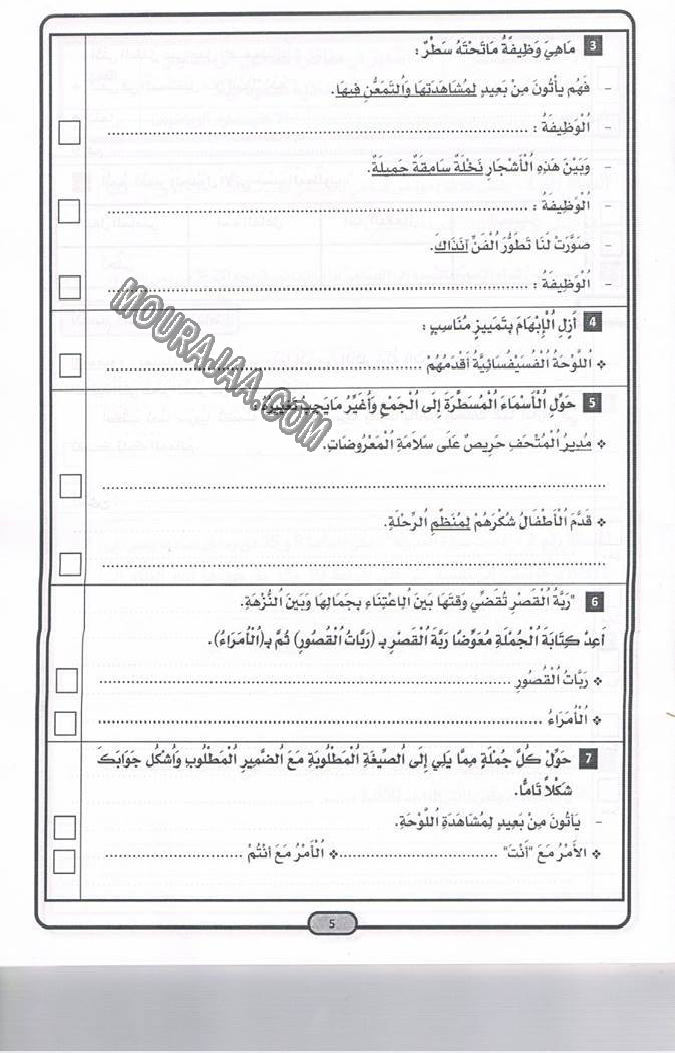 3 مَاهِيَ وَظِيفَةُ مَاتَحْتَهُ سَطْرٌ :
- فَهُم يأْتُونَ مِنْ بَعِيدٍ لِمُشَاهَدَتِهَا وَالتَّمَعُّنِ فِيهَا.
- الْوَظِيفَةُ : ................................................
- وَبَيْنَ هَذِهِ الْأَشْجَارِ نَخْلَةٌ سَامِقَةٌ جَمِيلَةٌ.
- الْوَظِيفَةُ : ................................................
- صَوَّرَتْ لَنَا تَطَوُّرَ الْفَنِّ آنَذَاكَ.
- الْوَظِيفَةُ : ................................................
4 أُزِلِ الْإِبْهَامَ بِتَمْيِيزٍ مُنَاسِبٍ :
❖ اللَّوْحَةُ الْفُسَيْفُسَائِيَّةُ أَقْدَمُهُمْ ................................................
5 حَوِّلِ الْأَسْمَاءَ الْمُسَطَّرَةَ إِلَى الْجَمْعِ وَأُغَيِّرُ مَايَجِبُ تَغْيِيرُهُ :
❖ مُدِيرُ الْمُتْحَفِ حَرِيصٌ عَلَى سَلَامَةِ الْمَعْرُوضَاتِ.
................................................
❖ قَدَّمَ الْأَطْفَالُ شُكْرَهُمْ لِمُنَظِّمِ الرِّحْلَةِ.
................................................
6 "رَبَّةُ الْقَصْرِ تُقَضِّي وَقْتَهَا بَيْنَ الِاعْتِنَاءِ بِجَمَالِهَا وَبَيْنَ النُّزْهَةِ.
أَعِدْ كِتَابَةَ الْجُمْلَةِ مُعَوِّضًا رَبَّةُ الْقَصْرِ بِـ (رَبَّاتُ الْقُصُورِ) ثُمَّ بِـ(الْأُمَرَاءُ).
❖ رَبَّاتُ الْقُصُورِ ................................................
❖ الْأُمَرَاءُ ................................................
7 حَوِّلْ كُلَّ جُمْلَةٍ مِمَّا يَلِي إِلَى الصِّيغَةِ الْمَطْلُوبَةِ مَعَ الضَّمِيرِ الْمَطْلُوبِ وَاشْكُلْ جَوَابَكَ
شَكْلاً تَامًّا.
- يَأْتُونَ مِنْ بَعِيدٍ لِمُشَاهَدَةِ اللَّوْحَةِ.
❖ الأَمْرُ مَعَ "أَنْتَ" ........................❖ الْأَمْرُ مَعَ أَنْتُمْ ........................
5
MOURAJAA.COM